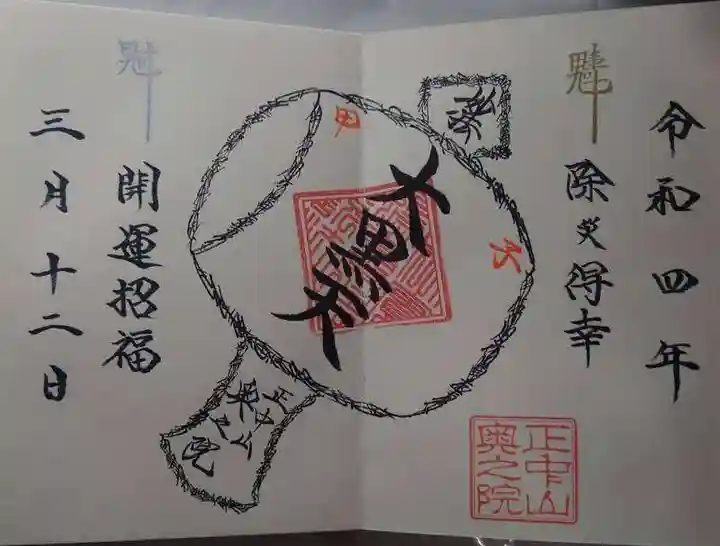 令和四年
除災得幸
大黒天
正中山
奥之院
開運招福
三月十二日
正中山
奥之院